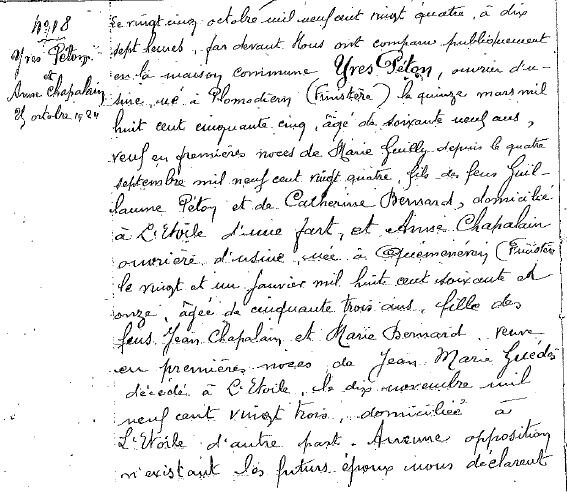 N° 18
Yves Péton
et
Anne Chapalain
25 octobre 1924
Le vingt cinq octobre mil neuf cent vingt quatre, à dix
sept heures, par devant Nous ont comparu publiquement
en la maison commune Yves Péton, ouvrier d'u-
sine, né à Plomodiern (Finistère) le quinze mars mil
huit cent cinquante cinq, âgé de soixante neuf ans,
veuf en premières noces de Marie Guilly depuis le quatre
septembre mil neuf cent vingt quatre, fils des feus Guil-
laume Péton et de Catherine Bernard, domicilié
à L'Etoile d'une part, et Anne Chapalain
ouvrière d'usine, née à Quemenéven (Finistère
le vingt et un janvier mil huit cent soixante et
onze, âgée de cinquante trois ans, fille des
feus Jean Chapalain et Marie Bernard, veuve
en premières noces de Jean Marie Guédès
décédé à L'Etoile, le dix novembre mil
neuf cent vingt trois, domiciliée à
L'Etoile d'autre part. Aucune opposition
n'existant les futurs époux nous déclarent